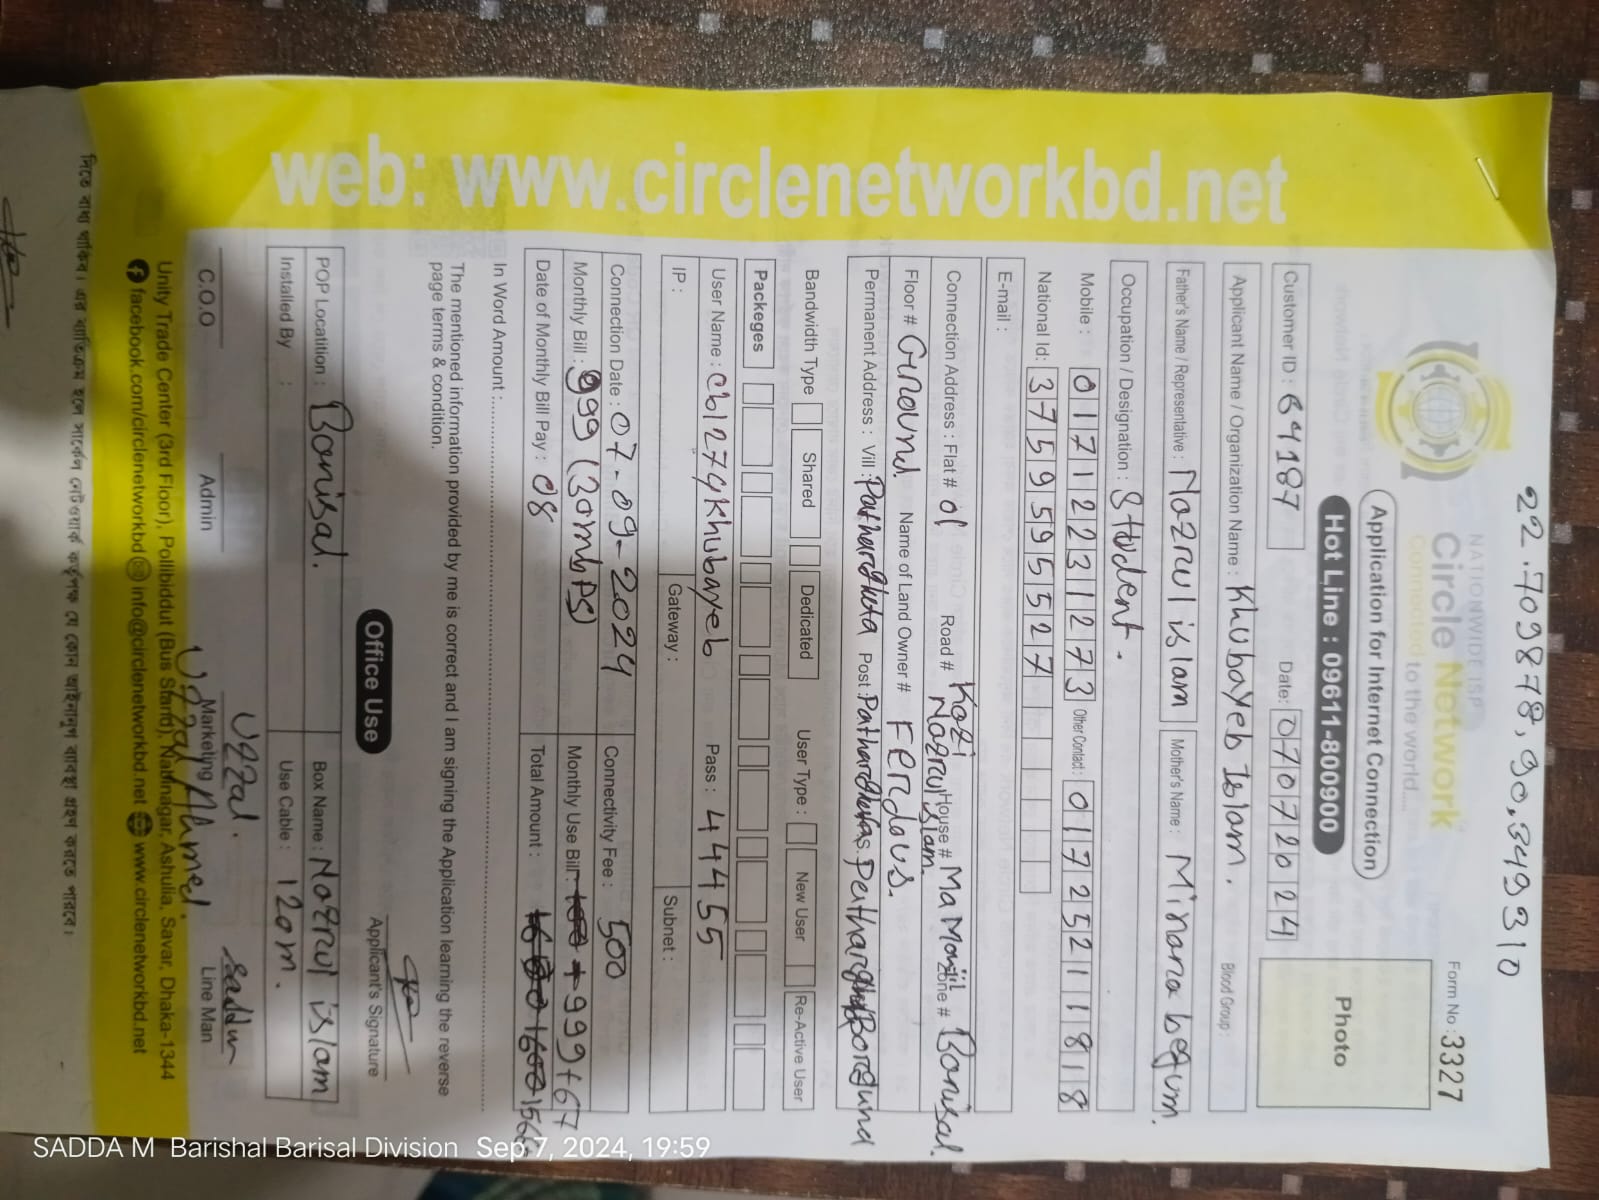 22.709878, 90.349310
NATIONWIDE ISP
Circle Network
Connected to the world....
Form No : 3327
Application for Internet Connection
Hot Line : 09611-800900
Photo
Customer ID : 64187 Date: 07072024
Applicant Name / Organization Name : Khubayeb Islam. Blood Group :
Father's Name / Representative : Nozrul islam Mother's Name : Minara begum.
Occupation / Designation : Student.
Mobile : 01712231273 Other Contact : 01725211818
National Id: 3759595527
E-mail :
Connection Address : Flat # 01 Road # Kazi Nozrul islam House # Ma Monjil Zone # Borisal.
Floor # Ground Name of Land Owner # Ferdous.
Permanent Address : Vil : Patharghata Post : P.S.
Bandwidth Type Shared Dedicated User Type : New User Re-Active User
Packeges
User Name : cb1279khubayeb Pass : 44455
IP : Gateway : Subnet :
Connection Date : 07-09-2024 Connectivity Fee : 500
Monthly Bill : 999 (30mbPS) Monthly Use Bill 999+67
Date of Monthly Bill Pay : 08 Total Amount :
In Word Amount :
The mentioned information provided by me is correct and I am signing the Application learning the reverse
page terms & condition.
Applicant's Signature
Office Use
POP Locatition : Borisal. Box Name : Nozrul islam
Installed By : Use Cable : 120m.
Uzzal. Saddu
C.O.O Admin Marketing Line Man
Uzzal Ahmed.
Unity Trade Center (3rd Floor), Pollibiddut (Bus Stand), Nabinagar, Ashulia, Savar, Dhaka-1344
facebook.com/circlenetworkbd info@circlenetworkbd.net www.circlenetworkbd.net
web: www.circlenetworkbd.net
SADDA M Barishal Barisal Division Sep 7, 2024, 19:59